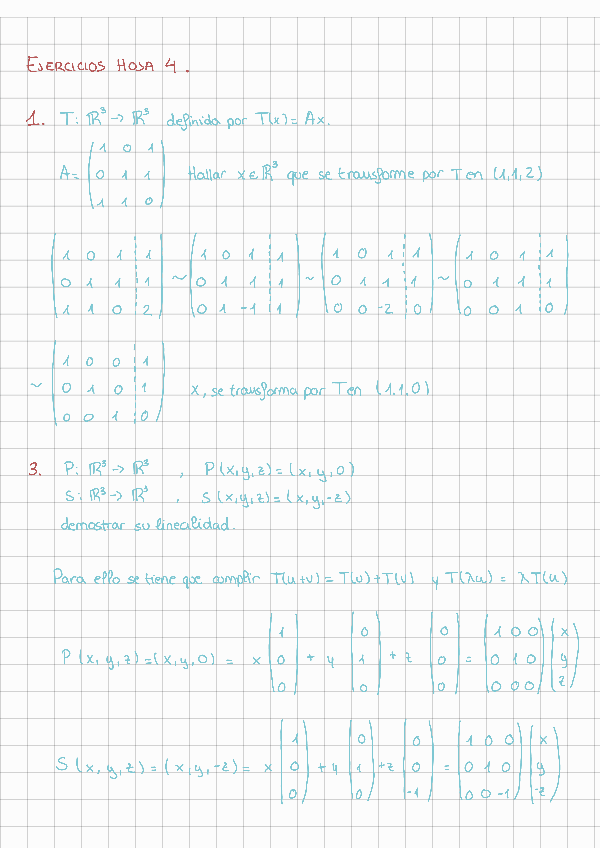 EJERCICIOS HOJA 4.
1. T: ℝ³ → ℝ³ definida por T(x) = Ax.
1 0 1
A = 0 1 1 Hallar x ∈ ℝ³ que se transforme por T en (1,1,2)
1 1 0
1 0 1 1 1 0 1 1 1 0 1 1 1 0 1 1
0 1 1 1 ~ 0 1 1 1 ~ 0 1 1 1 ~ 0 1 1 1
1 1 0 2 0 1 -1 1 0 0 -2 0 0 0 1 0
1 0 0 1
~ 0 1 0 1 x, se transforma por T en (1,1,0)
0 0 1 0
3. P: ℝ³ → ℝ³ , P(x,y,z) = (x,y,0)
S: ℝ³ → ℝ³ , S(x,y,z) = (x,y,-z)
demostrar su linealidad.
Para ello se tiene que cumplir T(u+v) = T(u)+T(v) y T(λu) = λT(u)
1 0 0 1 0 0 x
P(x,y,z) = (x,y,0) = x 0 + y 1 + z 0 = 0 1 0 y
0 0 0 0 0 0 z
1 0 0 1 0 0 x
S(x,y,z) = (x,y,-z) = x 0 + y 1 + z 0 = 0 1 0 y
0 0 -1 0 0 -1 -z